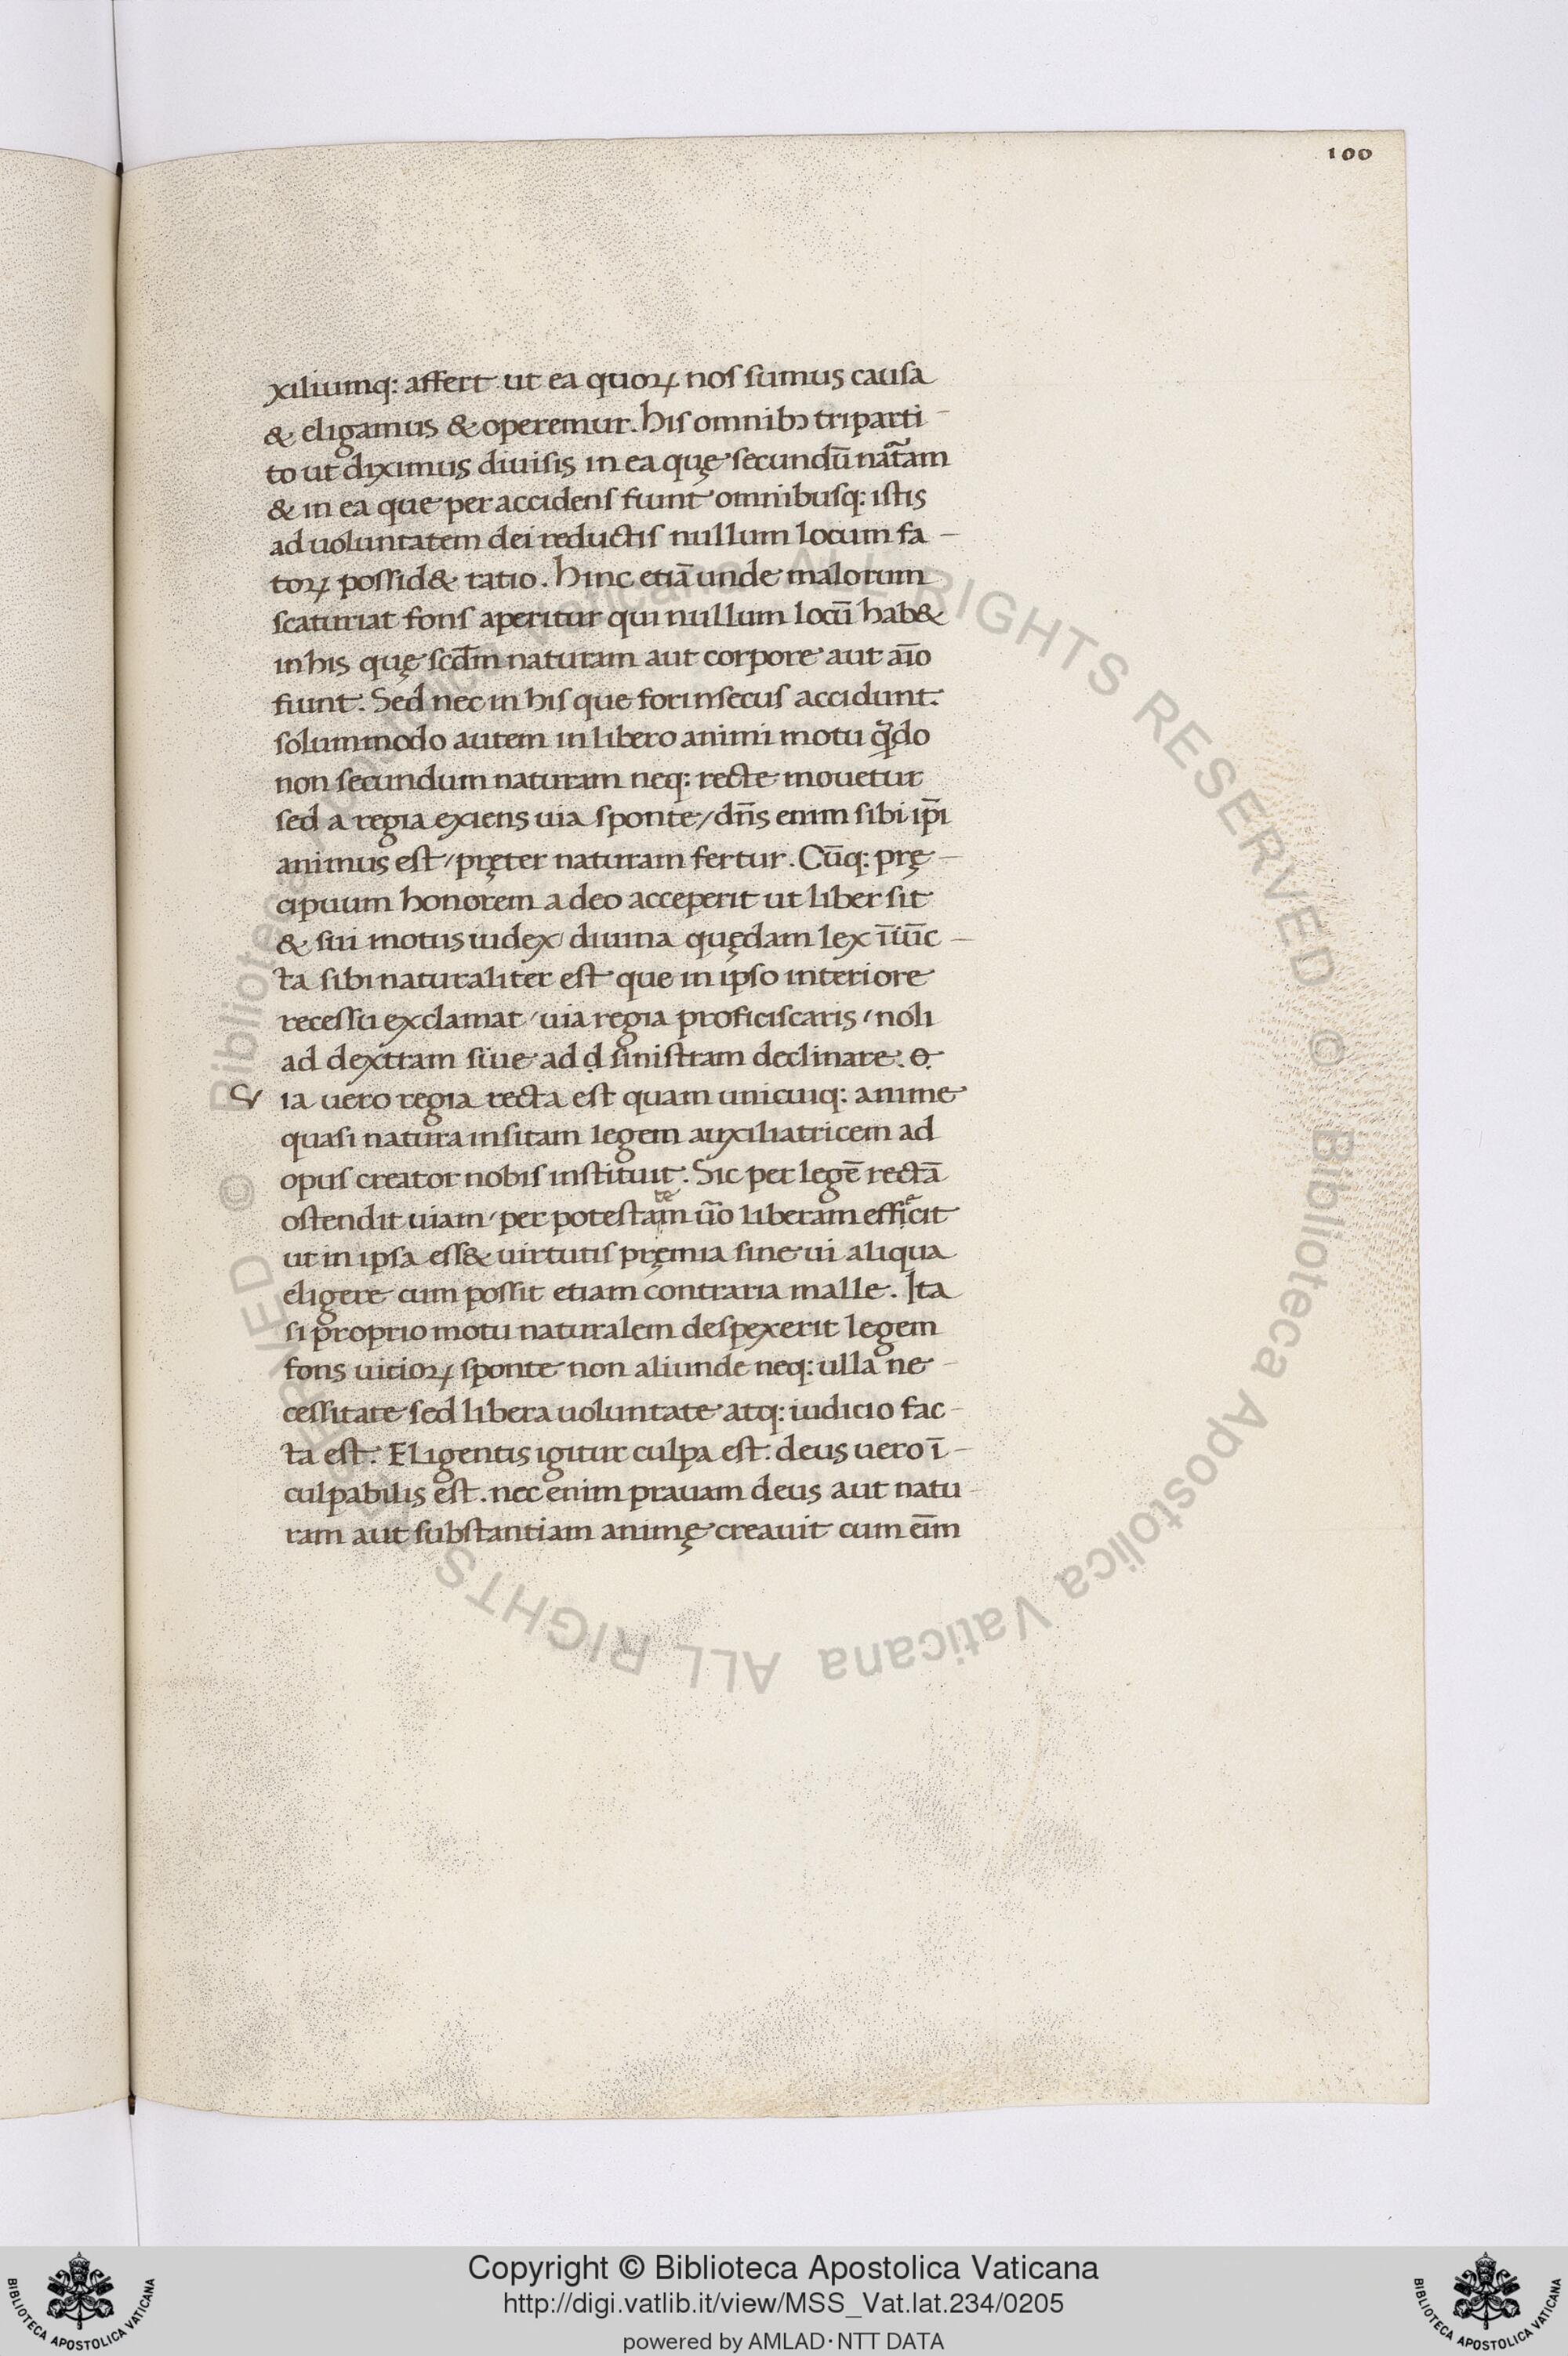 100
xiliumq: affert ut ea quoꝝ nos sumus causa
& eligamus & operemur. His omnibꝫ triparti-
to ut diximus diuisis in ea quę secundū nat̄am
& in ea que per accidens fiunt omnibusq: istis
ad uoluntatem dei reductis nullum locum fa-
toꝝ possid& ratio. Hinc etiā unde malorum
scaturiat fons aperitur qui nullum locū hab&
in his quę scd̄m naturam aut corpore aut aīo
fiunt. Sed nec in his que forinsecus accidunt.
solummodo autem in libero animi motu qn̄do
non secundum naturam neq: recte mouetur
sed a regia exiens uia sponte/dn̄s enim sibi ip̄i
animus est/pręter naturam fertur. Cūq: prę-
cipuum honorem a deo acceperit ut liber sit
& sui motus iudex/diuina quędam lex īiūc-
ta sibi naturaliter est que in ipso interiore
recessu exclamat/uia regia proficiscaris/noli
ad dextram siue ad ḍ sinistram declinare. Q.
V ia uero regia recta est quam unicuiq: anime
quasi natura insitam legem auxiliatricem ad
opus creator nobis instituit. Sic per legē rectā
ostendit uiam/per potestatem ūo liberam effecit
ut in ipsa ess& uirtutis pręmia sine ui aliqua
eligere cum possit etiam contraria malle. Ita
si proprio motu naturalem despexerit legem
fons uitioꝝ sponte non aliunde neq: ulla ne-
cessitate sed libera uoluntate atq: iudicio fac-
ta est. Eligentis igitur culpa est. deus uero ī-
culpabilis est. nec enim prauam deus aut natu-
ram aut substantiam animę creauit cum eīm
© Biblioteca Apostolica Vaticana ALL RIGHTS RESERVED © Biblioteca Apostolica Vaticana ALL RIGHTS RESERVED
Copyright © Biblioteca Apostolica Vaticana
http://digi.vatlib.it/view/MSS_Vat.lat.234/0205
powered by AMLAD·NTT DATA
BIBLIOTECA APOSTOLICA VATICANA
BIBLIOTECA APOSTOLICA VATICANA